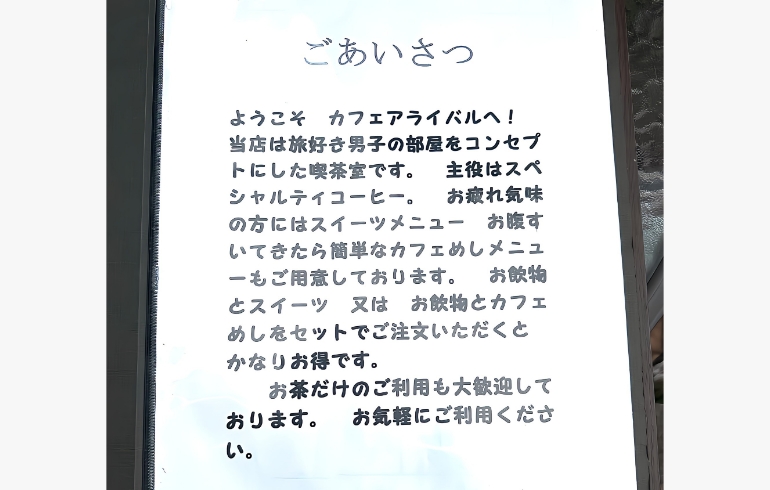 ごあいさつ
ようこそ　カフェアライバルへ！
当店は旅好き男子の部屋をコンセプ
トにした喫茶室です。　主役はスペ
シャルティコーヒー。　お疲れ気味
の方にはスイーツメニュー　お腹す
いてきたら簡単なカフェめしメニュ
ーもご用意しております。　お飲物
とスイーツ　又は　お飲物とカフェ
めしをセットでご注文いただくと
かなりお得です。
　お茶だけのご利用も大歓迎して
おります。　お気軽にご利用くださ
い。